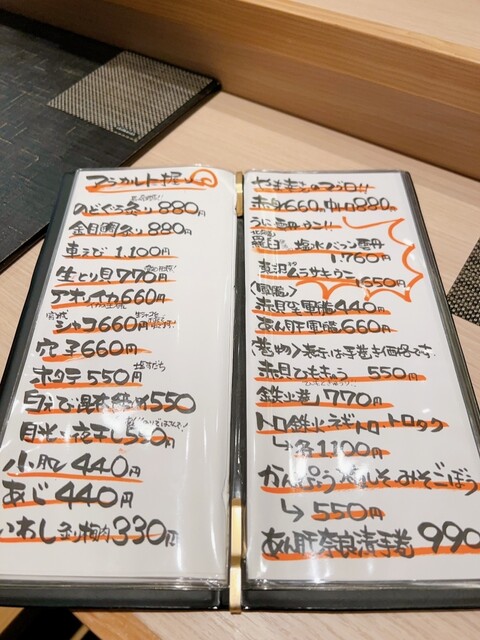 アラカルト握り
のどぐろ炙り 880円
金目鯛炙り 880円
車えび 1,100円
生とり貝 770円
アオリイカ 660円
シャコ 660円
穴子 660円
ホタテ 550円 塩すだち
白えび昆布締め 550
目光一夜干し 550円
小肌 440円
あじ 440円
いわし 炙り梅肉 330円
やま幸さんのマグロ!!
赤身 660円 中トロ 880円
うに雲丹ウニ!!
北海道
羅臼 塩水バフン雲丹
1,760円
ムラサキウニ
1650円
〈軍艦〉
赤貝 軍艦 440円
あん肝軍艦 660円
〈巻物〉表示は手巻き価格です
赤貝ひもきゅう 550円
鉄火巻 770円
トロ鉄火・ネギトロ・トロタク
↳各 1,100円
かんぴょう・梅しそ・みそごぼう
↳ 550円
あん肝奈良漬手巻 990